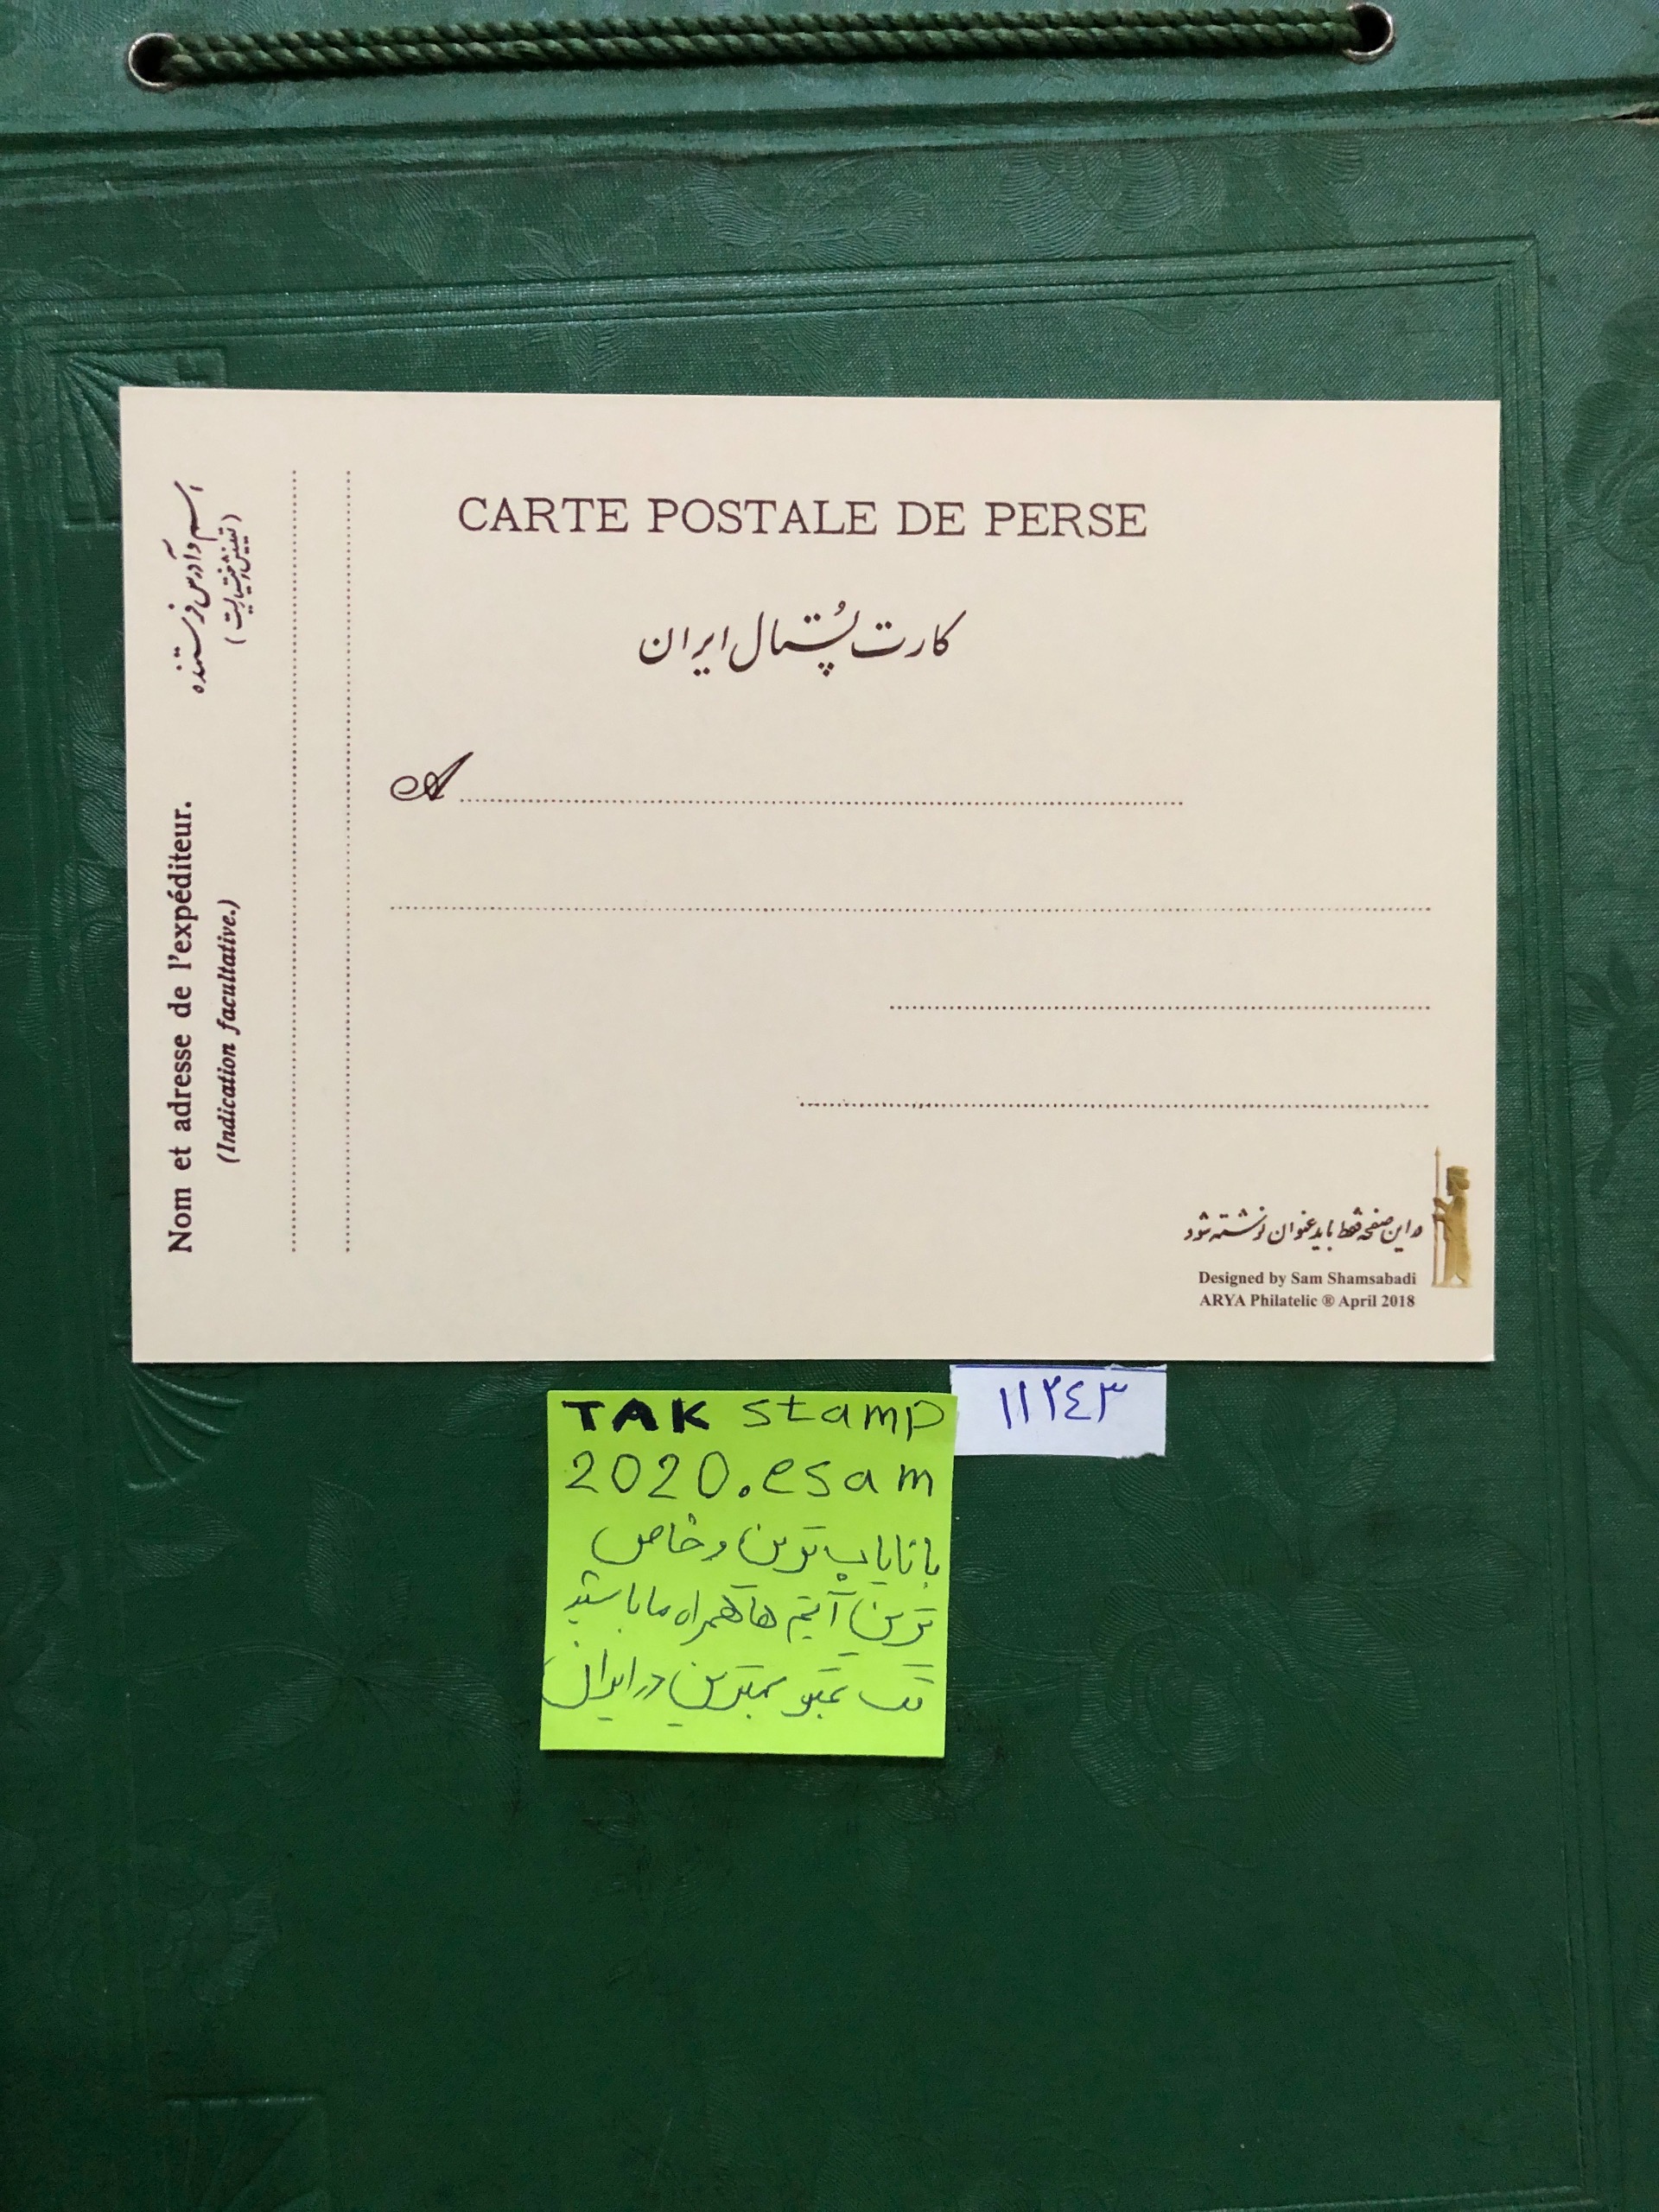 CARTE POSTALE DE PERSE
کارت پُستال ایران
A
اسم و آدرس فرستنده
Nom et adresse de l'expéditeur.
(Indication facultative.)
در این صفحه فقط باید عنوان نوشته شود
Designed by Sam Shamsabadi
ARYA Philatelic ® April 2018
۱۱۲٤۳
TAK stamp
2020.esam
با نایاب ترین و خاص
ترین آیتم ها همراه ما باشید
تک تمبر بهترین در ایران